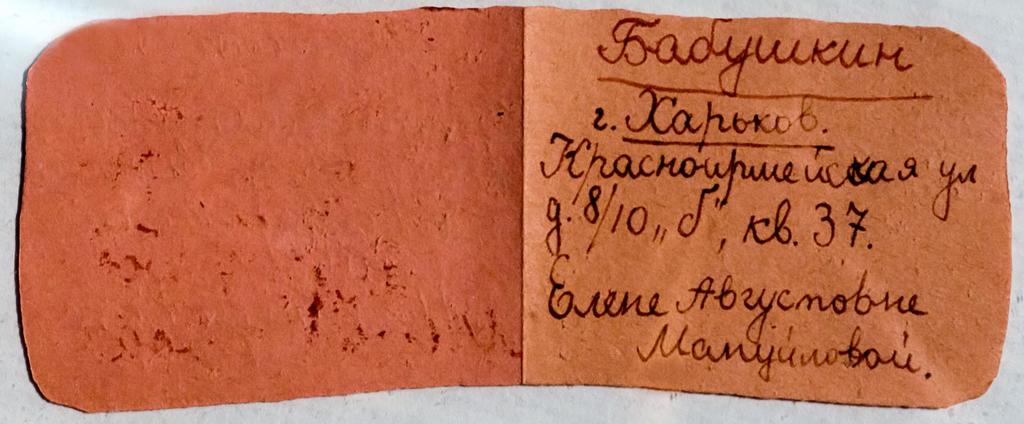 Бабушкин
г. Харьков.
Красноармейская ул
д. 8/10 „б", кв. 37.
Елене Августовне
Мануйловой.